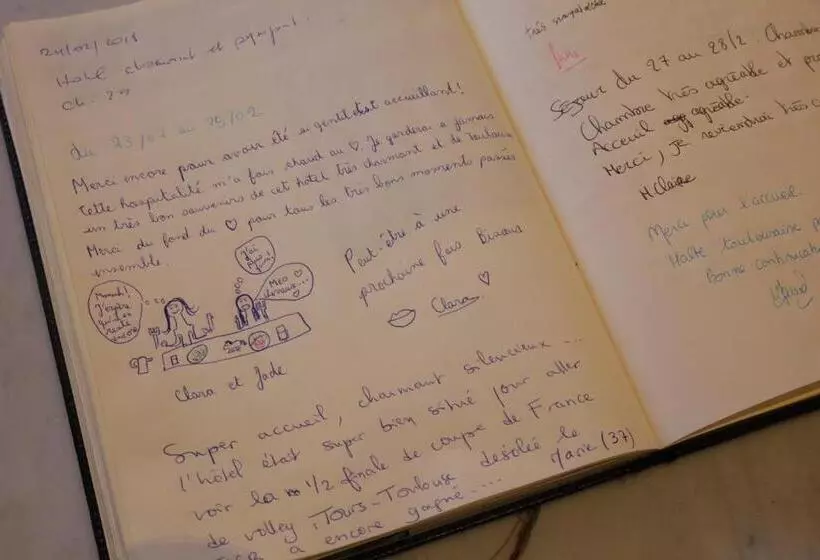 24/02/2018
Hôtel charmant et sympa!
Ch.
du 23/02 au 25/02
Merci encore pour avoir été si gentil et accueillant!
Cette hospitalité m'a fais chaud au ♡. Je garderai a jamais
un très bon souvenirs de cet hôtel très charmant et de Toulouse
Merci du fond du ♡ pour tous les tres bons moments passés
ensemble.
J'ai plus faim!
Miaam! J'espère qu'il en reste encore
Peut-être à une
prochaine fois Bisous
♡
Clara.
Clara et Jade
Super accueil, charmant silencieux ...
l'hôtel était super bien situé pour aller
voir la 1/2 finale de coupe de France
de volley : Tours-Toulouse désolée le
a encore gagné.... Marie (37)
très
Séjour du 27 au 28/2. Chambre
Chambre très agréable et
Acceuil agréable.
Merci, je reviendrai très
M Claire
Merci pour l'accueil.
Halte toulousaine
Bonne continuation